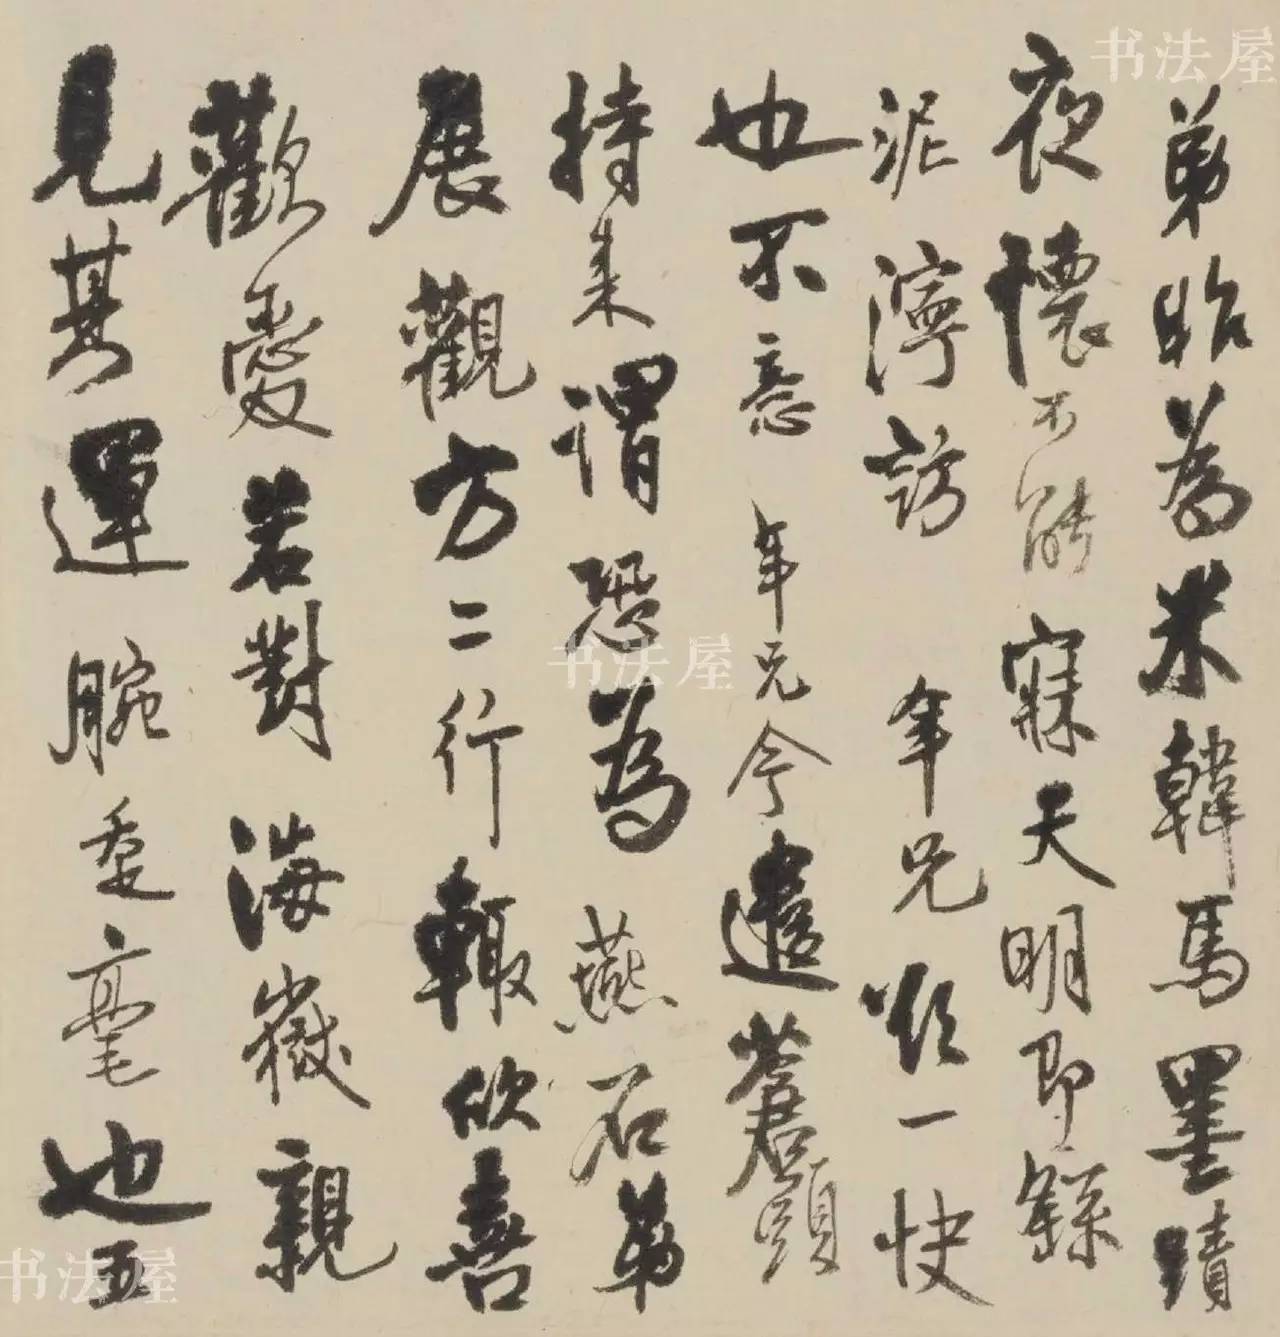 弟昨為米韓馬墨蹟
夜懷不能寐天明即
泥濘訪 年兄 一快
也不意 年兄今遣蒼頭
持来謂恐為 燕石弟
展觀方二行輙欣喜
歡愛若對 海嶽親
見其運 腕垂毫也五
书法屋
书法屋
书法屋